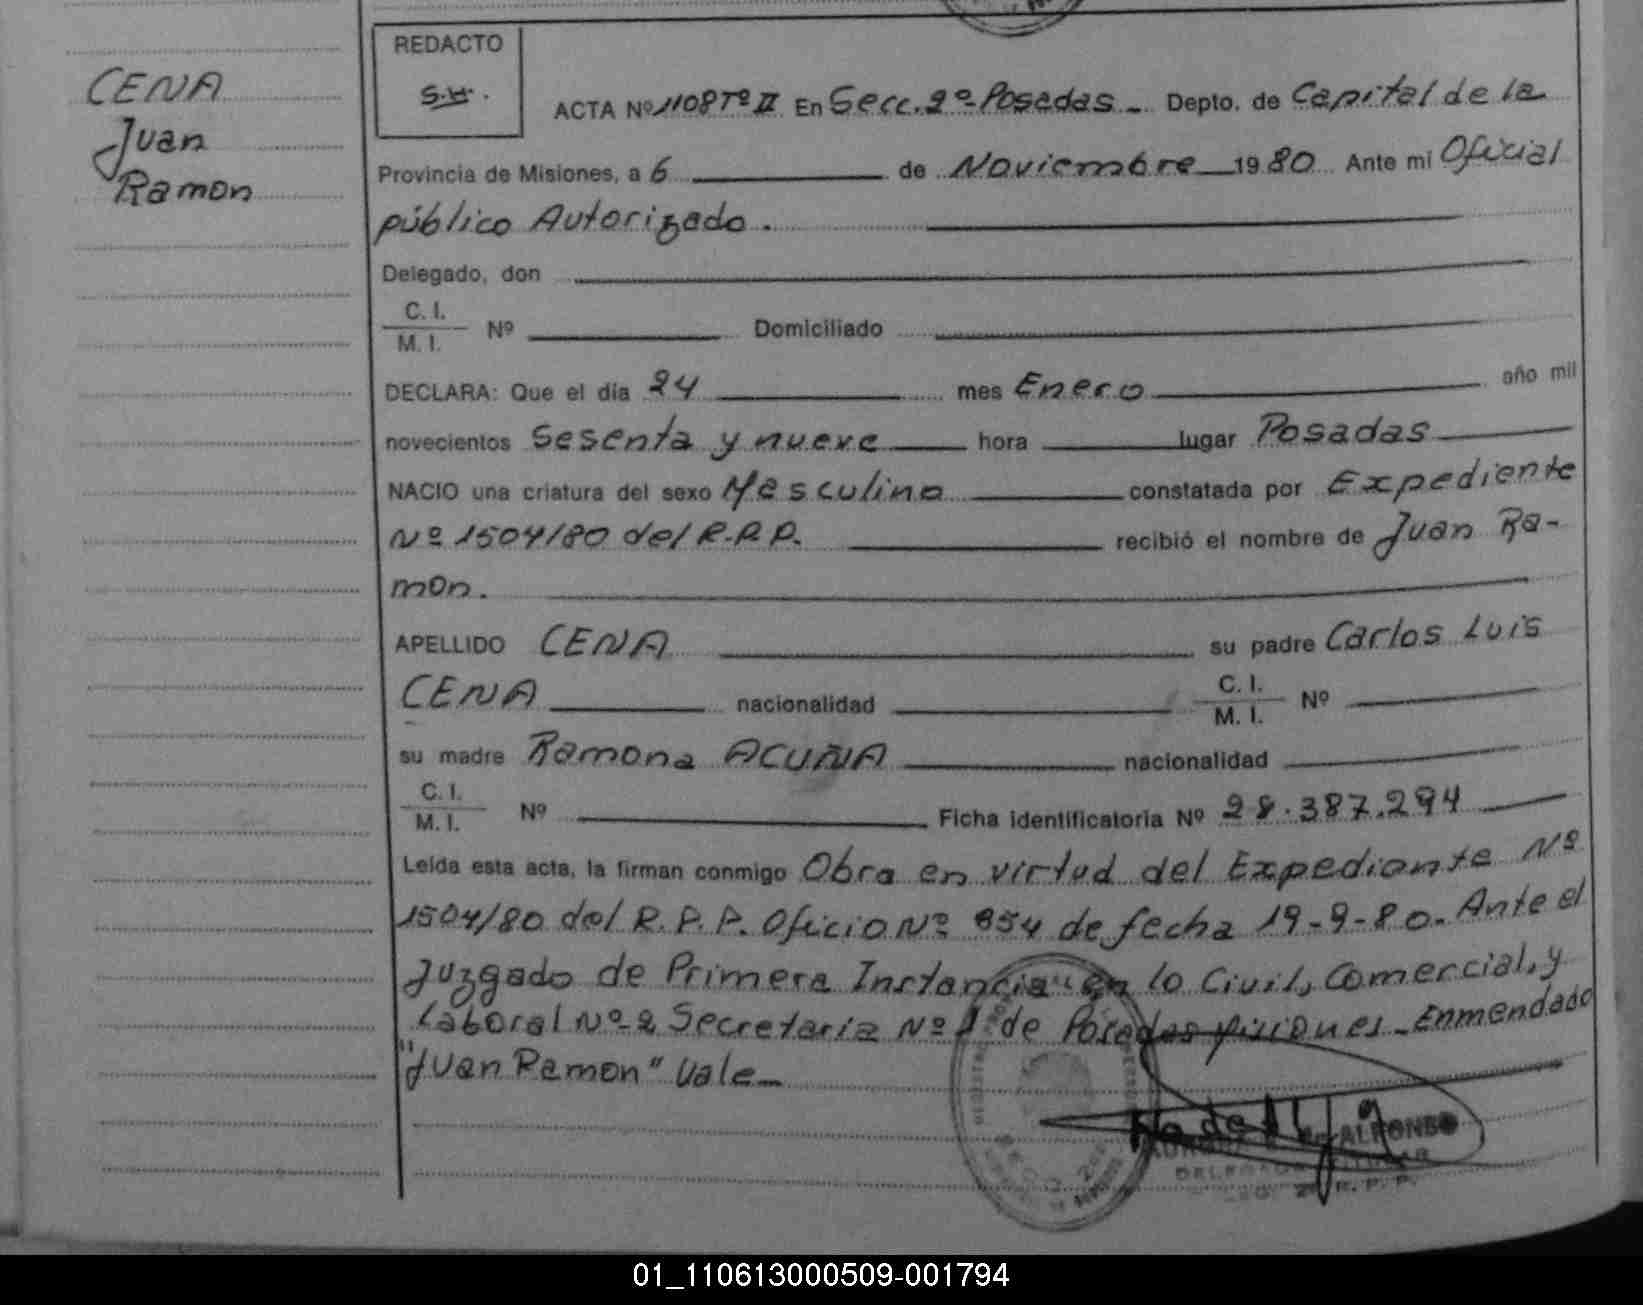 CENA
Juan
Ramon
REDACTO
S.H.
ACTA Nº 1108 Tº II En Secc. 2º Posadas - Depto. de Capital de la
Provincia de Misiones, a 6 de Noviembre 1980 Ante mi Oficial
público Autorizado.
Delegado, don
C. I.
M. I. Nº Domiciliado
DECLARA: Que el día 24 mes Enero año mil
novecientos Sesenta y nueve hora lugar Posadas
NACIO una criatura del sexo Masculino constatada por Expediente
Nº 1504/80 del R.P.P. recibió el nombre de Juan Ra-
mon.
APELLIDO CENA su padre Carlos Luis
CENA nacionalidad C. I. M. I. Nº
su madre Ramona ACUÑA nacionalidad
C. I.
M. I. Nº Ficha identificatoria Nº 28.387.294
Leída esta acta, la firman conmigo Obra en virtud del Expediente Nº
1504/80 del R.P.P. Oficio Nº 854 de fecha 19-9-80. Ante el
Juzgado de Primera Instancia en lo Civil, Comercial, y
Laboral Nº 2 Secretaria Nº 1 de Posadas Misiones - Enmendado
"Juan Ramon" Vale -
ALFONSO
DELEGADA TITULAR
R. P. P.
01_110613000509-001794